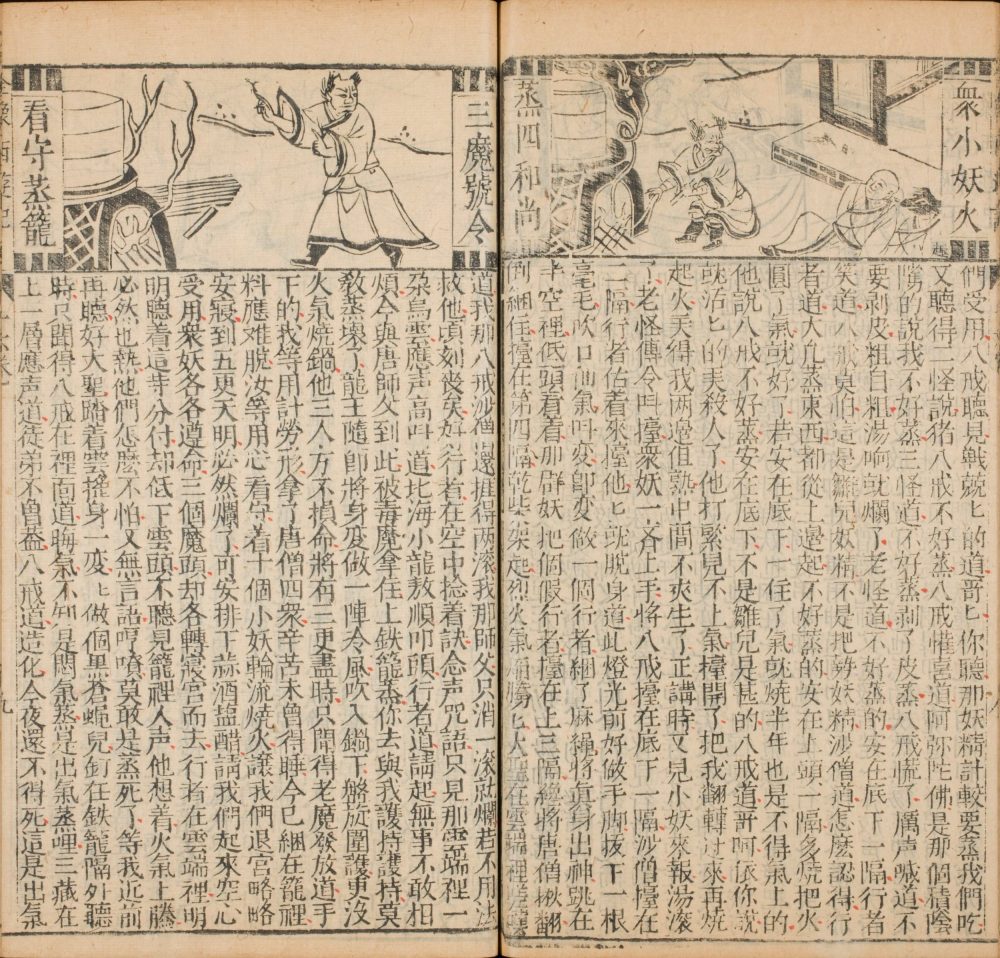 衆小妖火
蒸四和尚
們受用八戒聽見戰兢匕的道哥匕你聽那妖精計較要蒸我們吃
又聽得二怪說猪八戒不好蒸八戒懽喜道阿弥陀佛是那個積陰
隲的說我不好蒸三怪道不好蒸剝了皮蒸八戒慌了厲声喊道不
要剝皮粗自粗湯响就爛了老怪道不好蒸的安在底下一隔行者
笑道八戒莫怕這是雛兒妖精不是把勢妖精沙僧道怎麽認得行
者道大凢蒸東西都從上邊起不好蒸的安在上頭一隔多燒把火
圓了氣就好了若安在底下一住了氣就燒半年也是不得氣上的
他說八戒不好蒸安在底下不是雛兒是甚的八戒道哥呵依你說
就活匕的弄殺人了他打緊見不上氣擡開了把我翻轉过來再燒
起火弄得我两邊俱熟中間不夾生了正講時又見小妖來報湯滾
了老怪傳令叫擡衆妖一齊上手將八戒擡在底下一隔沙僧擡在
二隔行者估着來擡他匕就脫身道此燈光前好做手脚拔下一根
毫毛吹口仙氣叫变卽变做一個行者綑了麻繩將真身出神跳在
半空裡低頭看着那群妖把個假行者擡在上三隔纔將唐僧楸翻
倒綑住擡在第四隔乾柴架起烈火氣焰騰匕大聖在雲端裡嗟嘆
三魔號令
看守蒸籠
道我那八戒沙僧還捱得两滾我那師父只消一滾就爛若不用法
救他頃刻丧矣好行者在空中捻着訣念声咒語只見那雲端裡一
朶烏雲應声高叫道北海小龍敖順叩頭行者道請起無事不敢相
煩今與唐師父到此被毒魔拿住上鉄籠蒸你去與我護持護持莫
敎蒸壞了龍王隨卽將身变做一陣冷風吹入鍋下盤旋圍護更沒
火氣燒鍋他三人方不損命將有三更盡時只聞得老魔發放道手
下的我等用計勞形拿了唐僧四衆辛苦未曾得睡今已綑在籠裡
料應难脫汝等用心看守着十個小妖輪流燒火讓我們退宮略略
安寢到五更天明必然爛了可安排下蒜酒塩醋請我們起來空心
受用衆妖各各遵命三個魔頭却各轉寢宮而去行者在雲端裡明
明聽着這等分付却低下雲頭不聽見籠裡人声他想着火氣上騰
必然也熱他們怎麽不怕又無言語哼嗔莫敢是蒸死了等我近前
再聽好大聖踏着雲搖身一变匕做個黑蒼蠅兒釘在鉄籠隔外聽
時只聞得八戒在裡面道晦氣不知是悶氣蒸是出氣蒸哩三藏在
上一層應声道徒弟不曾葢八戒道造化今夜還不得死這是出氣
全像西遊記
九